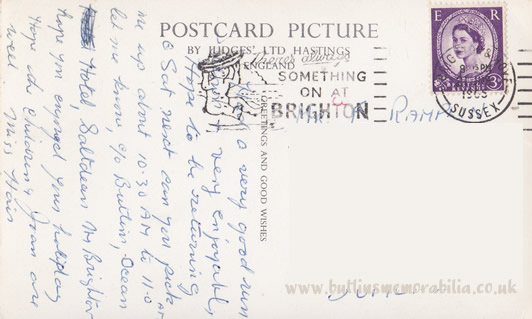 POSTCARD PICTURE
BY JUDGES' LTD HASTINGS
ENGLAND
There's always
SOMETHING
ON AT
BRIGHTON
E R
3D
SUSSEX
GREETINGS AND GOOD WISHES
RAMP
a very good run
& very enjoyable,
Hope to be returning
Sat next can you pick
me up about 10-30 AM to 11-0
let me know, c/o Butlins, Ocean
Hotel, Saltdean Nr Brighton
hope you enjoyed your holiday
Hope the children & Joan are
well Miss Hair
www.butlinsmemorabilia.co.uk